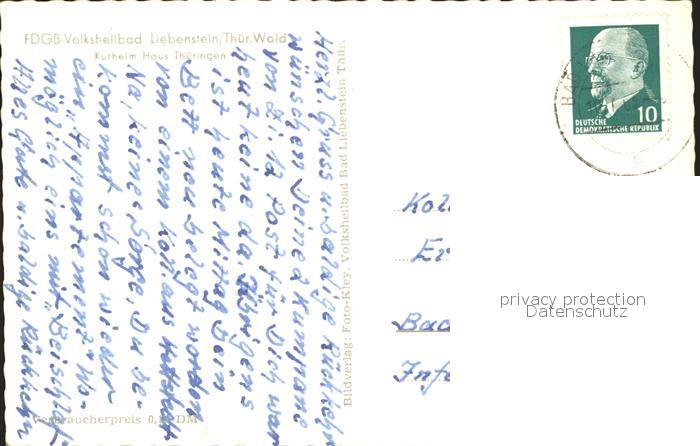 FDGB-Volksheilbad Liebenstein/Thür.Wald
Kurheim Haus Thüringen
Herzl. Gruss u. baldige Rückkehr
wünschen Deine 2 Kumpane
von Zi. 12. Post für Dich war
heut keine da. Übrigens
ist heute Mittag Dein
Bett neu belegt worden
von einem
Na, keine Sorge, Du be-
kommst schon wieder
ein "Appartement" wo-
möglich eins mit
Alles Gute u. baldige Rückkehr
Bildverlag: Foto-Kley, Volksheilbad Bad Liebenstein Thür.
Verbraucherpreis 0, DM
DEUTSCHE
DEMOKRATISCHE REPUBLIK 10
BA
Kol
Er
Bad
Inf
privacy protection
Datenschutz